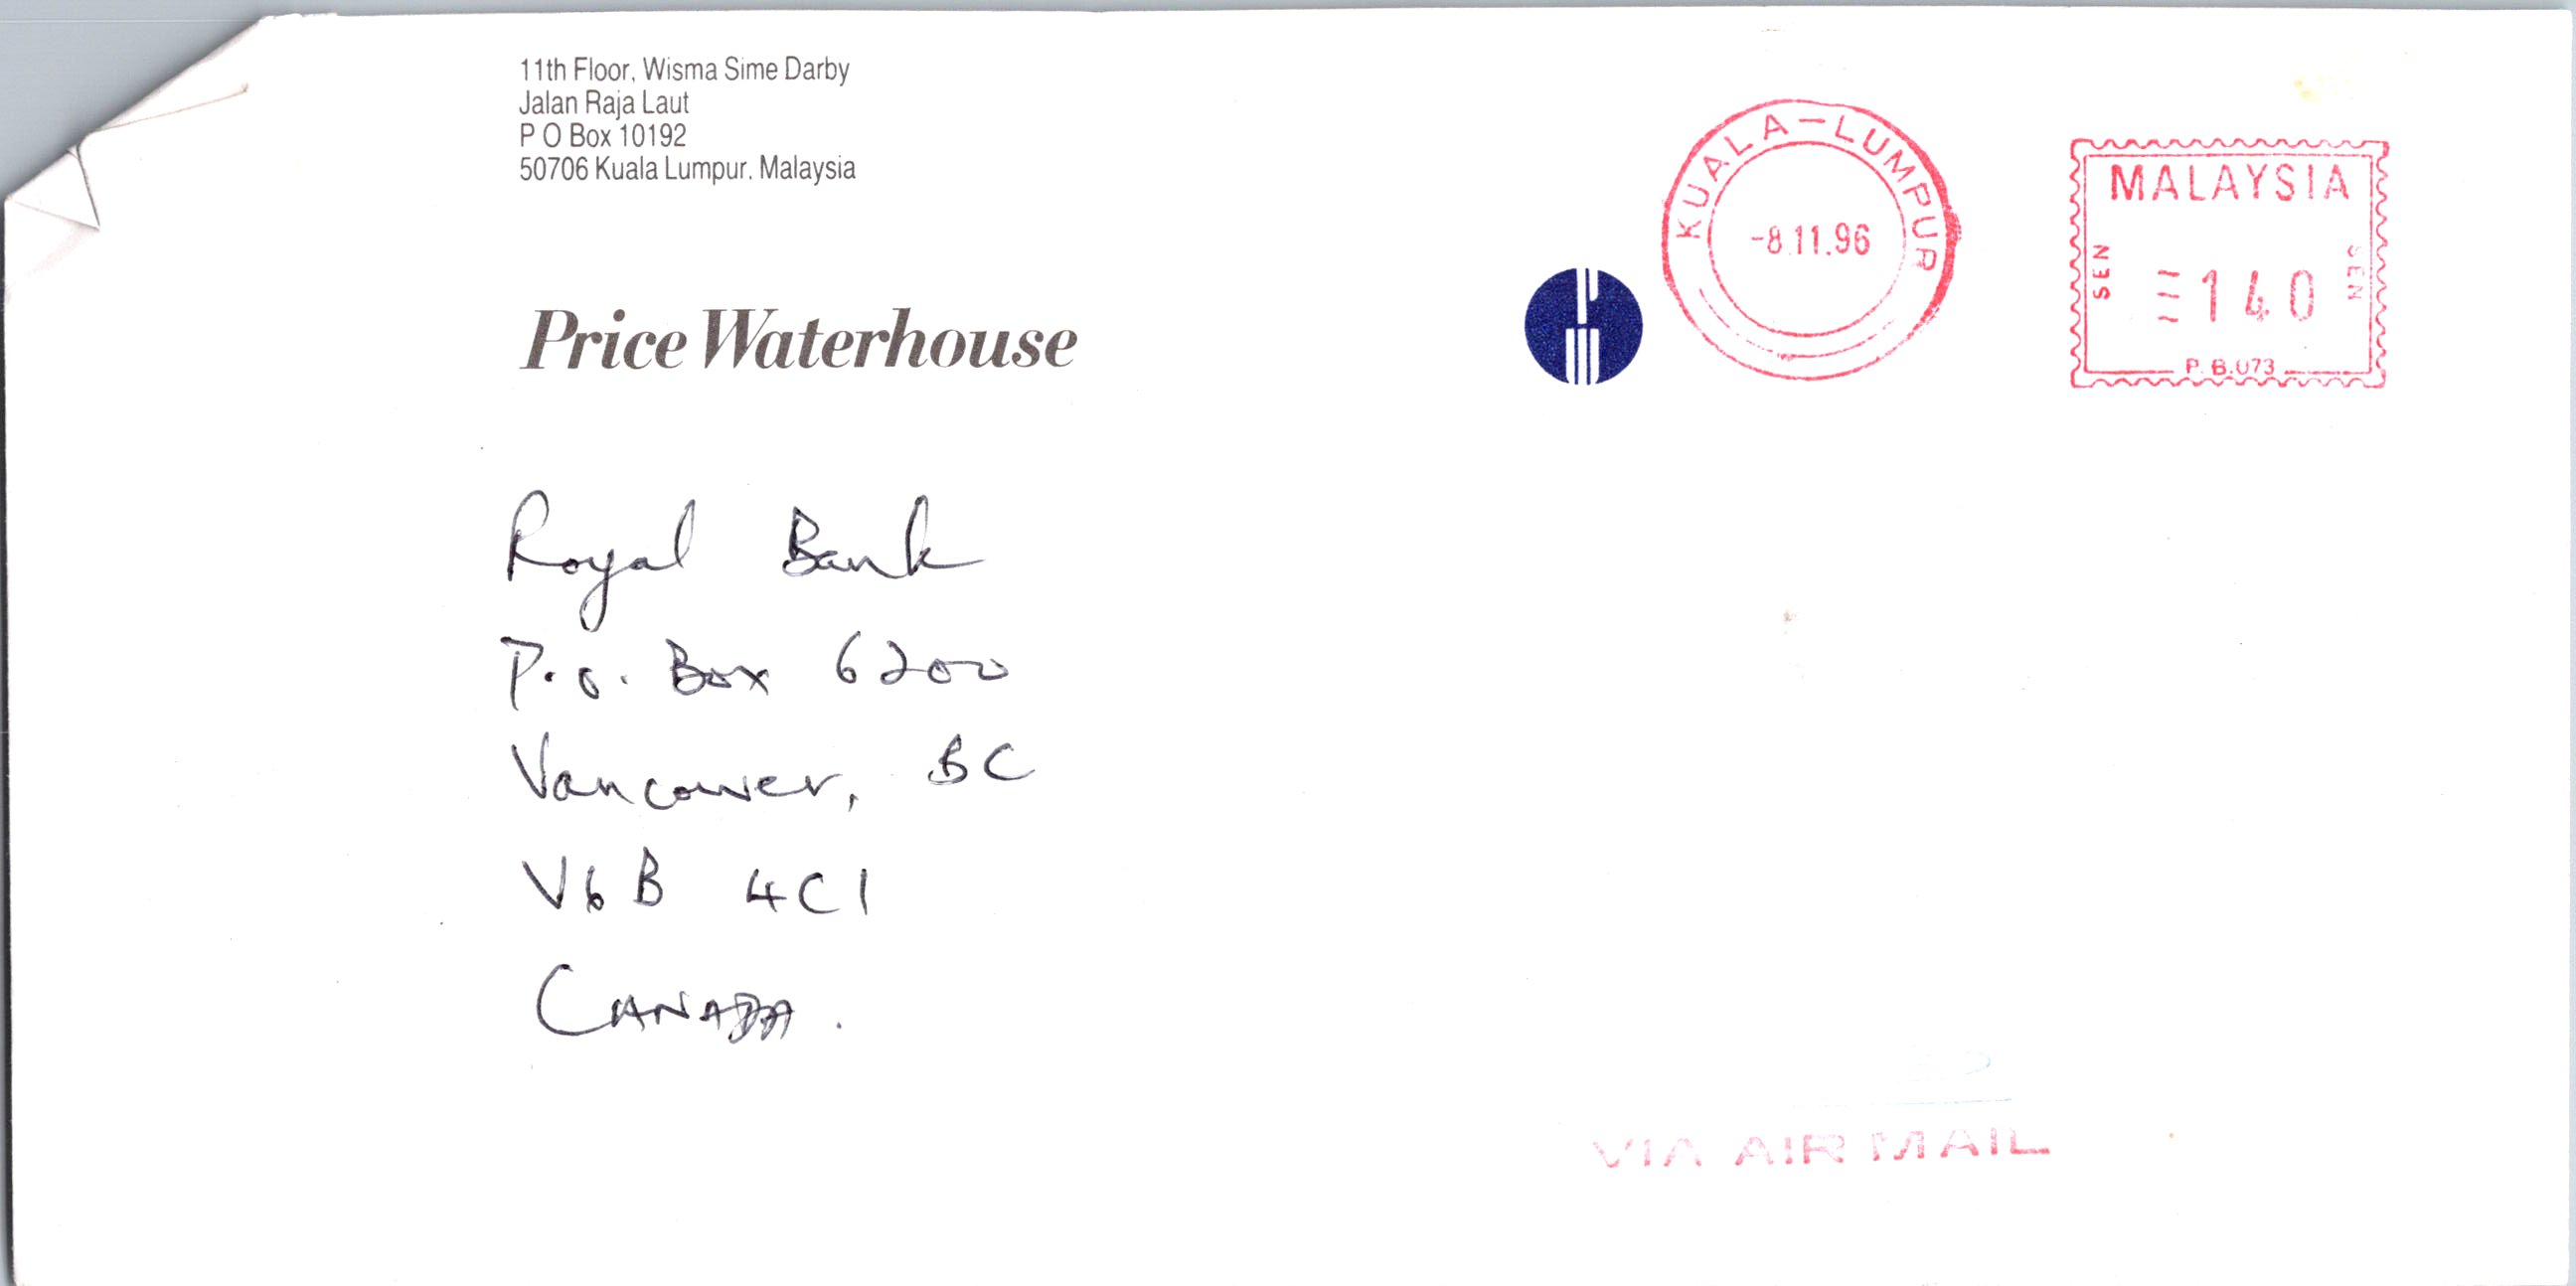 11th Floor, Wisma Sime Darby
Jalan Raja Laut
P O Box 10192
50706 Kuala Lumpur. Malaysia
KUALA-LUMPUR
-8.11.96
MALAYSIA
SEN
140
SEN
P.B.073
Price Waterhouse
Royal Bank
P.O. Box 6200
Vancouver, BC
V6B 4C1
CANADA.
VIA AIR MAIL